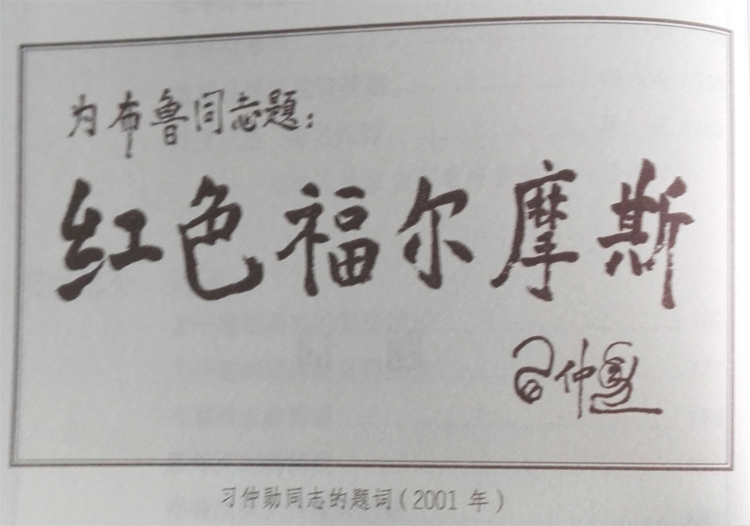 为布鲁同志题：
红色福尔摩斯
习仲勋
习仲勋同志的题词（2001 年）